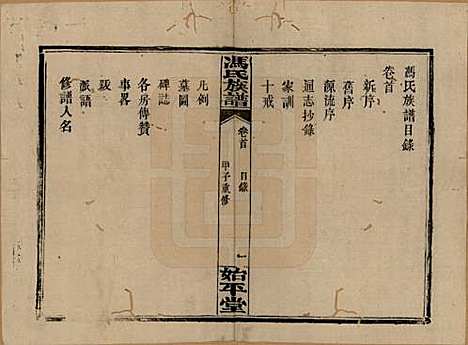 馮氏族譜目錄
卷首
新序
舊序
源流序
通志抄錄
家訓
十戒
馮氏族譜
卷首
目錄
一
甲子重修
始平堂
凡例
墓圖
碑誌
各房傳贊
事畧
跋
派語
修譜人名